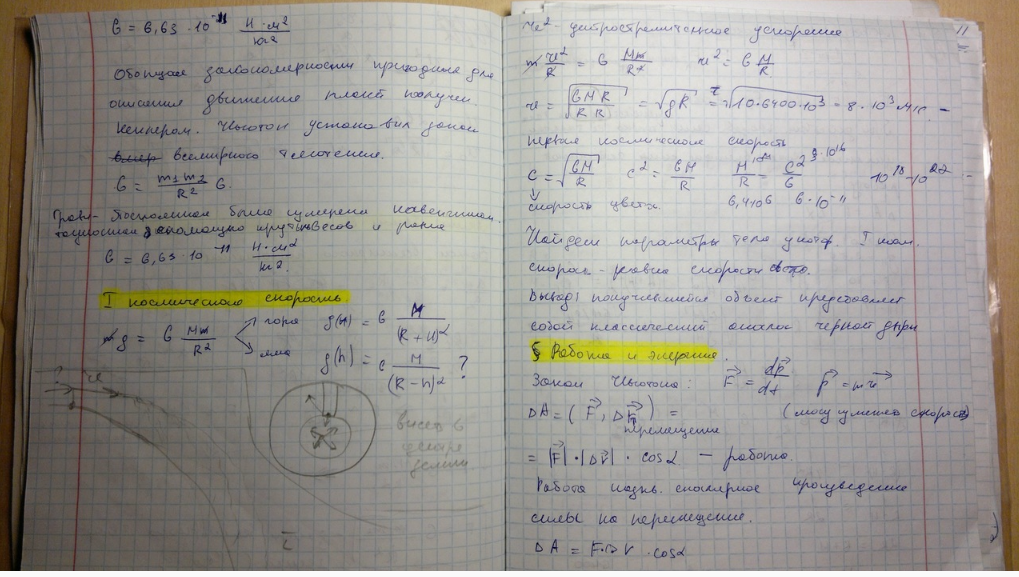 G = 6,63 · 10⁻¹¹ Н·м²/кг²
Обобщая закономерности приходим для
описания движения планет получен.
Кеплером. Ньютон установил закон
всемирного тяготения.
G = m₁m₂/R² G.
Грав. постоянная была измерена Кавендишем.
с помощью крут. весов и равна
G = 6,63 · 10⁻¹¹ Н·м²/кг².
I космическая скорость
g = G Mm/R²
гора g(H) = G M/(R+H)²
яма g(h) = G M/(R-h)² ?
υ
висев в
центре
земли
11
υ² - центростремительное ускорение
m υ²/R = G Mm/R² υ² = G M/R
υ = √(GMR/RR) = √(gR) = √(10·6400·10³) = 8·10³ м/с -
первая космическая скорость
c = √(GM/R) c² = GM/R M/R = c²/G 9·10¹⁶ 10¹⁸-10²⁷
скорость света 6,4·10⁶ 6·10⁻¹¹
Найдем параметры тела у кот. I косм.
скорость - равна скорости света.
Вывод: получившийся объект представляет
собой классический аналог черной дыры
§ Работа и энергия.
Закон Ньютона: F⃗ = dp⃗/dt p⃗ = mυ⃗
ΔA = (F⃗, Δr⃗) = (могу изменять скорость)
перемещение
= |F⃗|·|Δr⃗| · cosα — работа.
Работа назыв. скалярное произведение
силы на перемещение.
ΔA = F·Δr · cosα